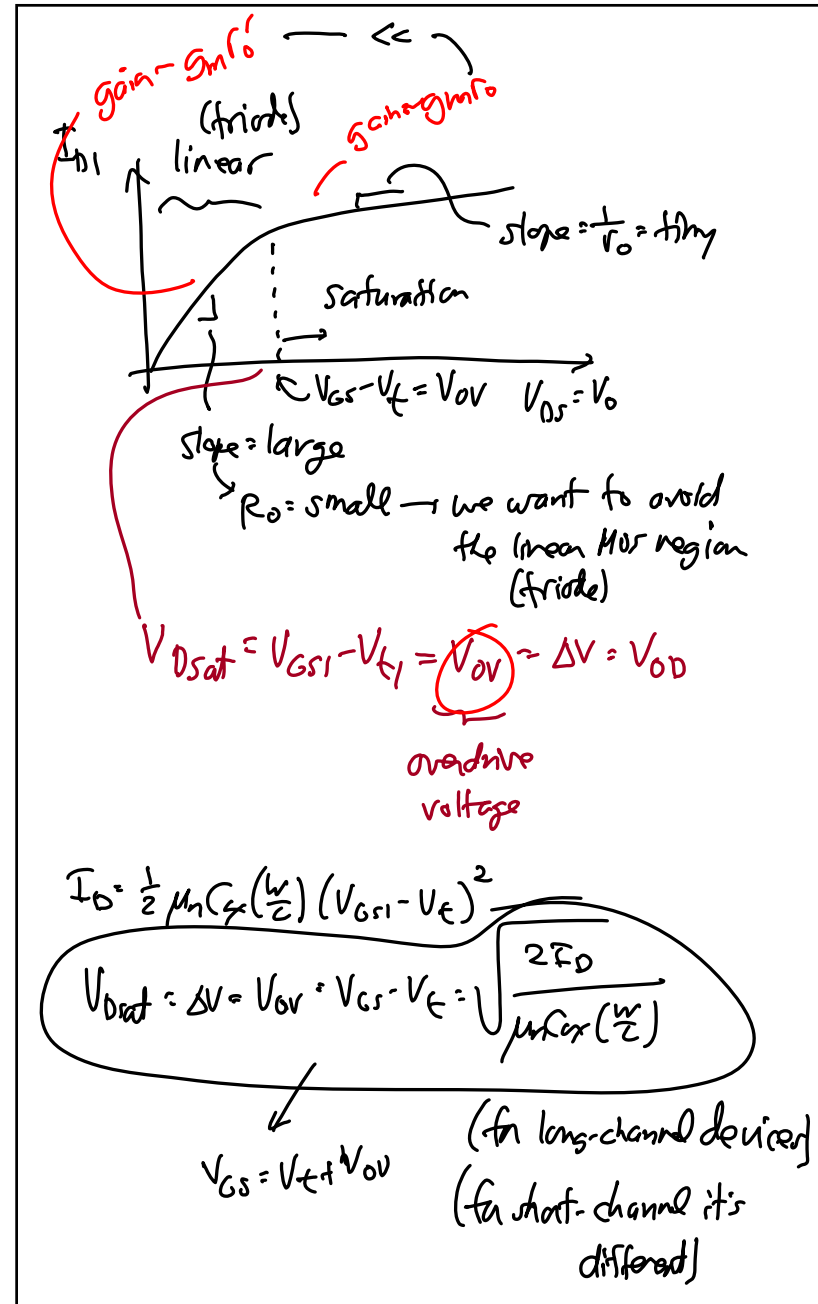 gain ~ gmro' — <<
(triode)
gain ~ gmro
ID1
linear
slope = 1/ro = tiny
saturation
VGS - Vt = VOV VDS = Vo
slope = large
Ro = small → we want to avoid
the linear MOS region
(triode)
VDsat = VGS1 - Vt1 = VOV = ΔV = VOD
overdrive
voltage
ID = 1/2 μnCox(W/L) (VGS1 - Vt)²
VDsat = ΔV = VOV = VGS - Vt = √(2ID / μnCox(W/L))
VGS = Vt + VOV
(for long-channel devices)
(for short-channel it's
different)